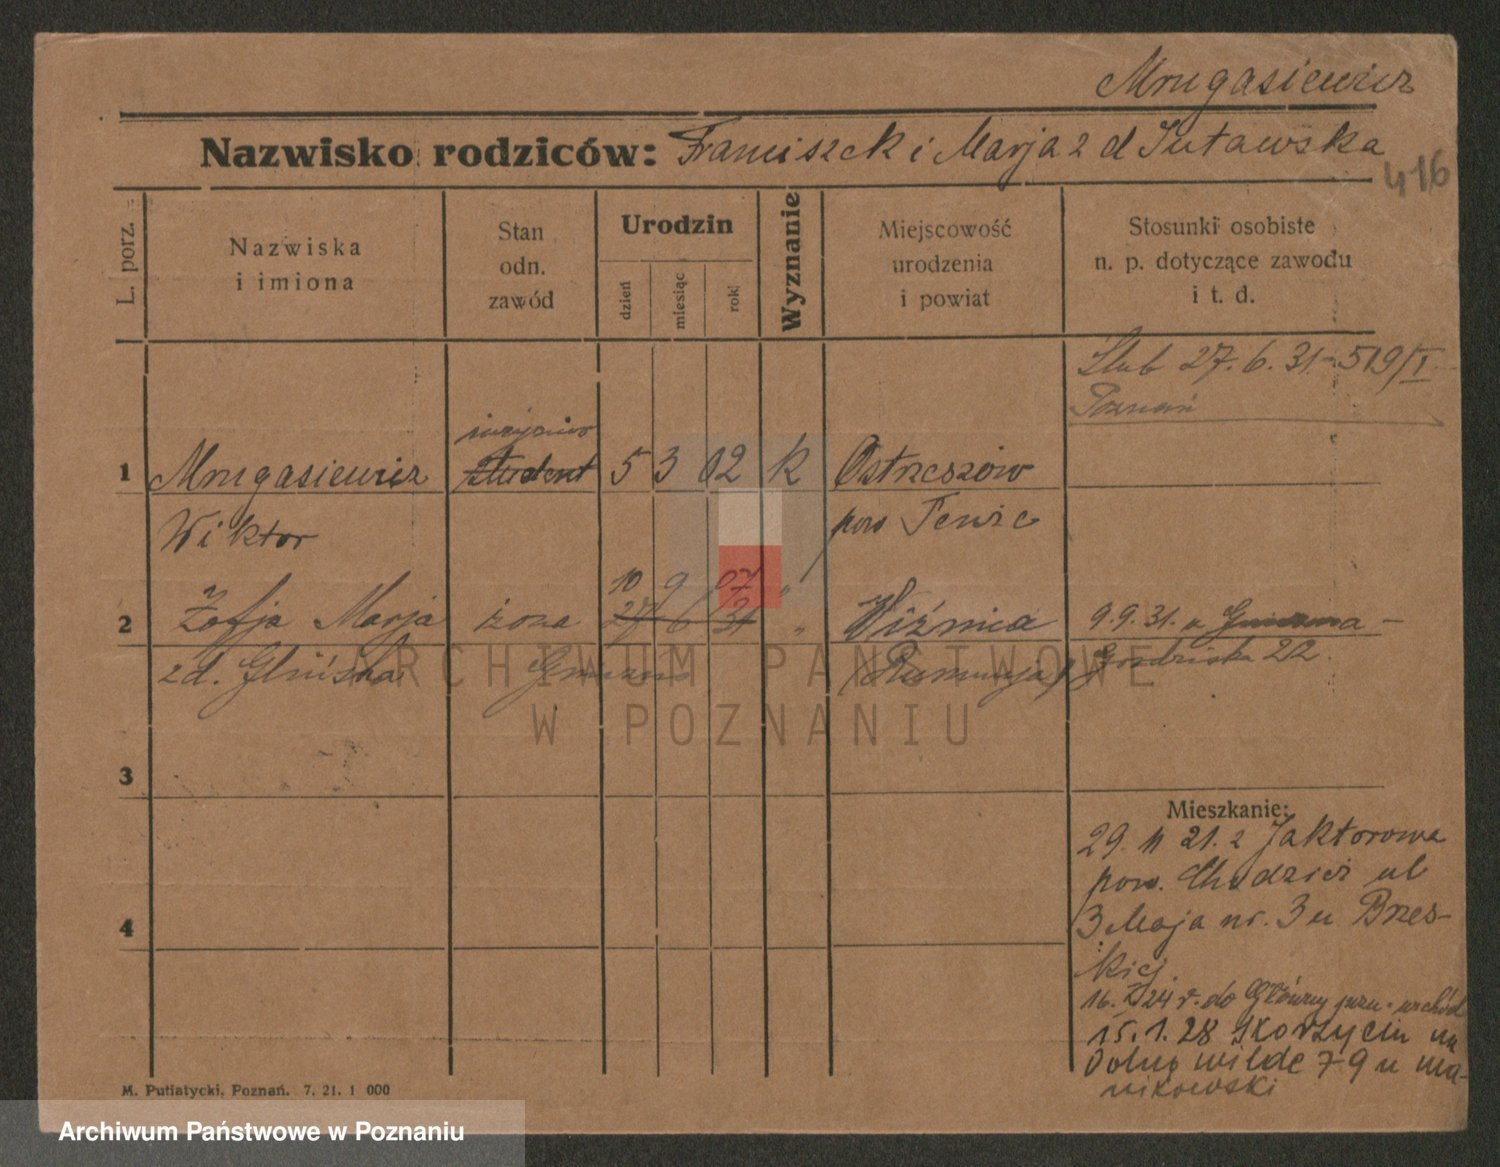 Mrugasiewicz
Nazwisko rodziców: Franciszek i Marja z d Jutawska
416
L. porz.
Nazwiska
i imiona
Stan
odn.
zawód
Urodzin
dzień
miesiąc
rok
Wyznanie
Miejscowość
urodzenia
i powiat
Stosunki osobiste
n. p. dotyczące zawodu
i t. d.
Ślub 27.6.31 - 519/I
Poznań
1
Mrugasiewicz
Wiktor
student
5 3 02 k
Ostrzeszów
pow
2
Zofja Marja
z d. Glińska
żona
10 9 07 "
27 6 31 "
Wiźnica
(Rumunja)
9.9.31. z Gniezna -
22
3
4
Mieszkanie:
29. 11 21. z Jaktorowa
pow. Chodzież ul
3 Maja nr. 3 u Brzes-
kiej.
16. 24 r. do
15.1.28 Skorzęcin na
Dolną wilde 79 u Ma-
nikowski
M. Putiatycki, Poznań. 7. 21. 1 000
ARCHIWUM PAŃSTWOWE
W POZNANIU
Archiwum Państwowe w Poznaniu